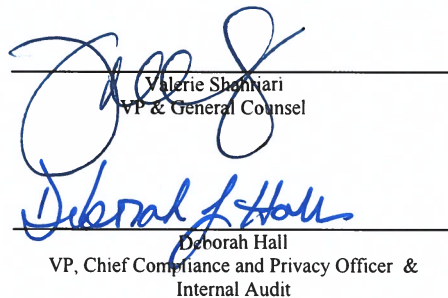 Valerie Shahriari
VP & General Counsel
Deborah J Hall
Deborah Hall
VP, Chief Compliance and Privacy Officer &
Internal Audit